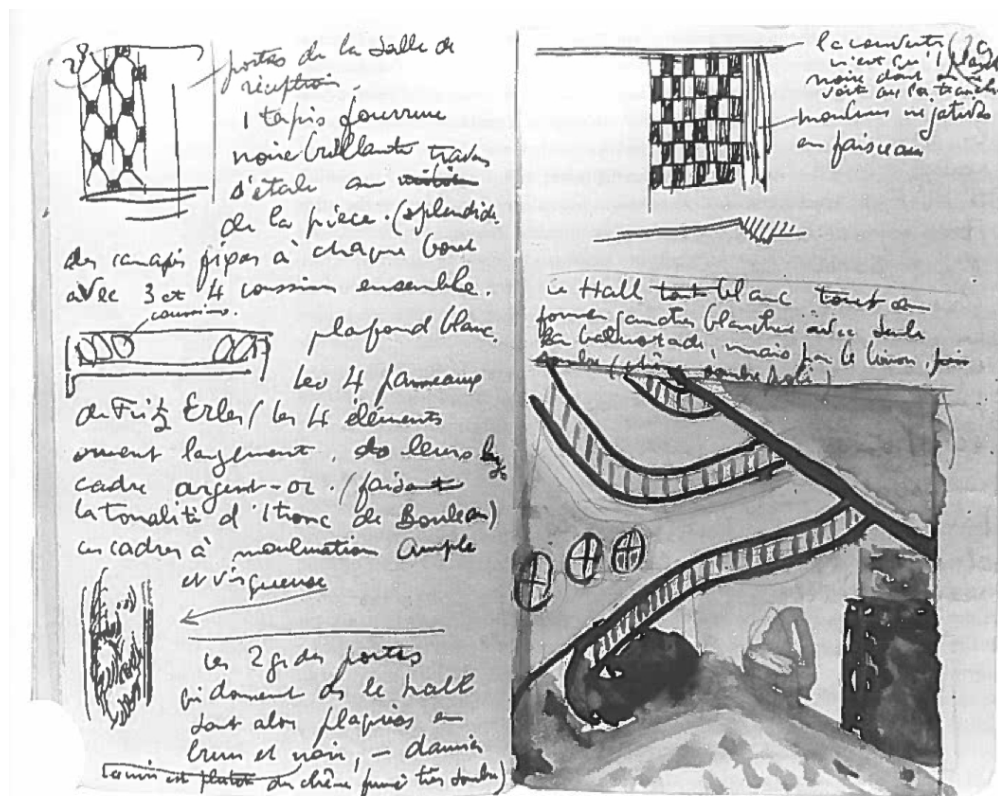 portes de la salle de
réception.
1 tapis fourrure
noire brillante
s'étale au milieu
de la pièce. (splendide.
des canapés fixes à chaque bout
avec 3 et 4 coussins ensemble.
coussins.
plafond blanc.
Les 4 panneaux
de Fritz Erler / les 4 éléments
ornent largement, ds leurs
cadre argent-or. (faisant
la tonalité d'1 tronc de Bouleau)
ces cadres à mouluration ample
et vigueuse
Les 2 gdes portes
qui donnent ds le hall
sont alors plaquées en
brun et noir, – damier
(le noir est plutôt du chêne fumé très sombre)
la couverte
n'est qu'1
noire dont on ne
voit que la tranche
moulures négatives
en faisceau
Le Hall tout blanc tout en
formes blanches avec seule
la balustrade, mais pas le limon,
sombre (chêne sombre poli)